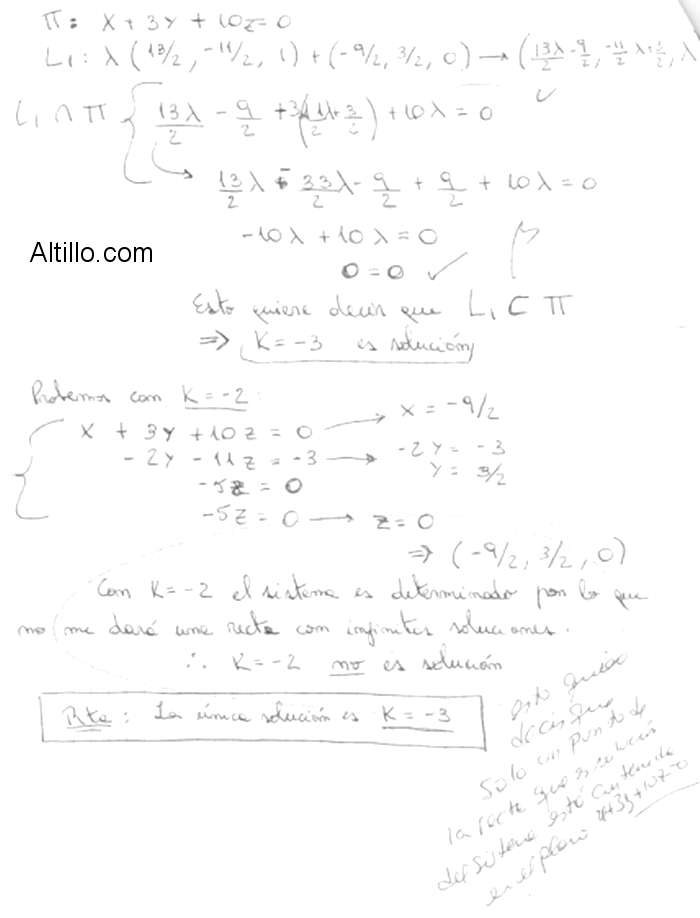 π: x + 3y + 10z = 0
L₁: λ (13/2, -11/2, 1) + (-9/2, 3/2, 0) → (13λ/2 - 9/2, -11/2 λ + 3/2, λ
L₁ ∩ π { 13λ/2 - 9/2 + 3( 11λ/2 + 3/2 ) + 10λ = 0 ✓
→ 13/2 λ - 33/2 λ - 9/2 + 9/2 + 10λ = 0
-10λ + 10λ = 0
Altillo.com
0 = 0 ✓
Esto quiere decir que L₁ ⊂ π
⇒ K = -3 es solución
Probemos con K = -2:
x + 3y + 10z = 0 → x = -9/2
- 2y - 11z = -3 → -2y = -3
y = 3/2
-5z = 0
-5z = 0 → z = 0
⇒ (-9/2, 3/2, 0)
Con K = -2 el sistema es determinado por lo que
no me dará una recta con infinitas soluciones.
∴ K = -2 no es solución
Rta: La única solución es K = -3
esto quiere
decir que
solo un punto de
la recta que es solución
del sistema está contenida
en el plano x+3y+10z=0